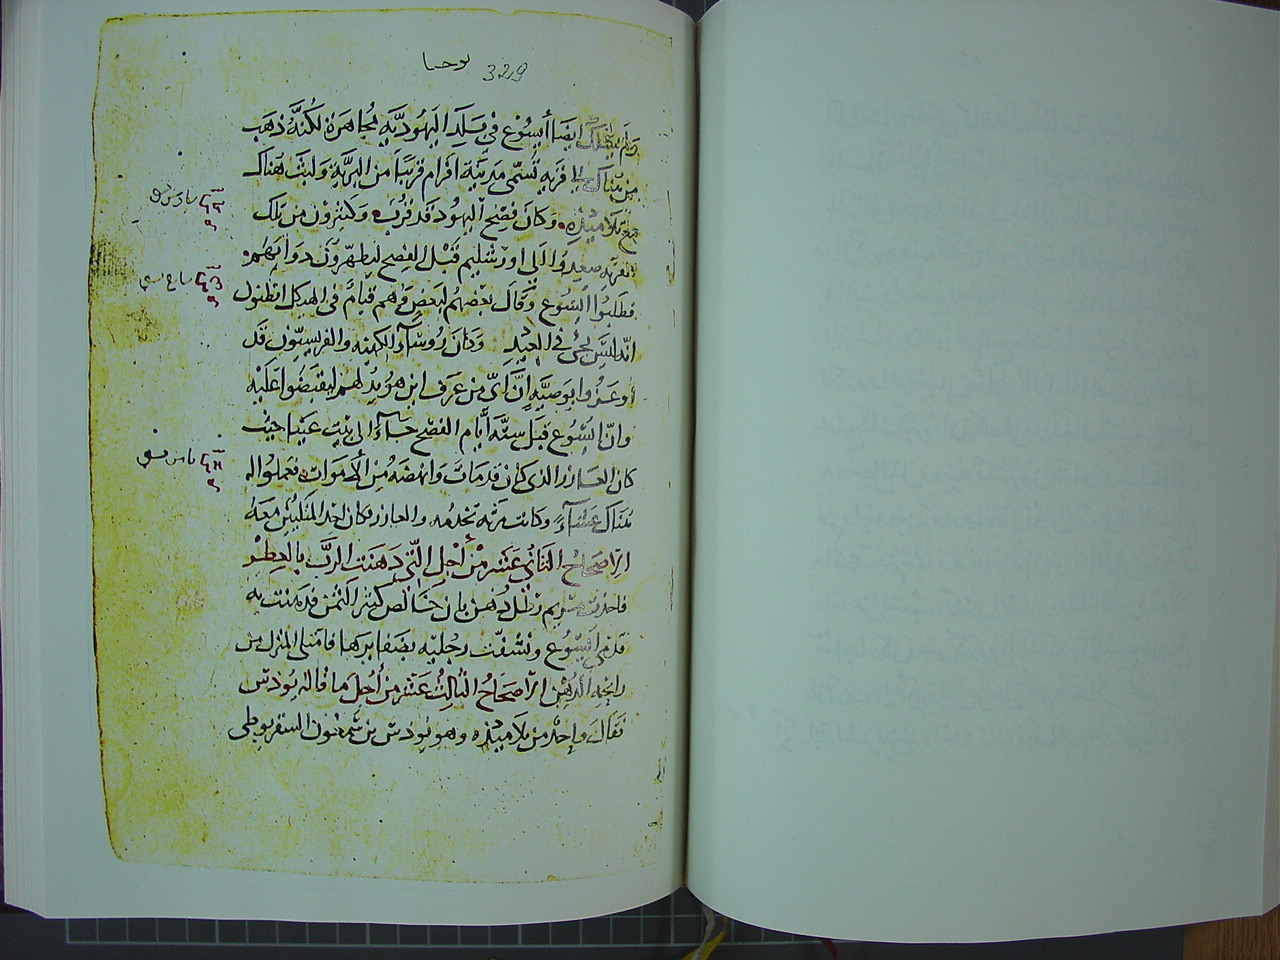 يوحنا 329
ولم يسلك ايضا أيسُوع في بَلَدِ اليَهُوديَّةِ مُجاهَرة لكنَّهُ ذهَب
من هناك إلى قريه تُسَمّى مَدينَة افرام قريبًا من البريَّةِ ولبثَ هناك
مع تلاميذه. وَكانَ فِصْح اليهُود قد قرُبَ وَكثيرُون من تلك
القريه صعِدوا الى اورشليم قبْل الفِصح ليطهّرون ذواتهم.
فطلبُوا أيسُوع وَقالَ بعضهُم لبعض وَهم قيامٌ في الهيكل اتظنون
انّه ليسَ يجئ في العِيدِ وَكانَ رُوسَآء الكهنه والفريسيّون قد
اوعَزُوا بوَصيَّه إنَّ أيّ من عَرف اين هو يدُلهم ليقبَضُوا عَليْه
وانّ ايسُوع قبَل ستَّة أيَّام الفصْح جَآءَ الى بيت عَنيا حيث
كان العازر الذي كانَ قد مَاتَ وَانهضَهُ مِن الأمَوات. فعَملُوا له
هُنَاك عَشآءً وكانت مرثه تخدمُه والعازر فكان احد المتَكئِين معَهُ
الاصَحَاحُ الثاني عَشر مْن أجل التّي دَهَنت الرَّب بالعِطِرْ
فاخذت مريم رَطل دُهن بان خَالص كثير الثمَن فدهنت به
قدمي ايسُوع ونشفّت رجُليْه بضفايرها فامتلى المنزل من
رايحة الدهن الاصَحَاحُ الثالث عَشر من أجْل ما قاله يُودس
فقالَ واحدٌ من تلاميذه وهو يُودس بن شمعُون السخريوطي